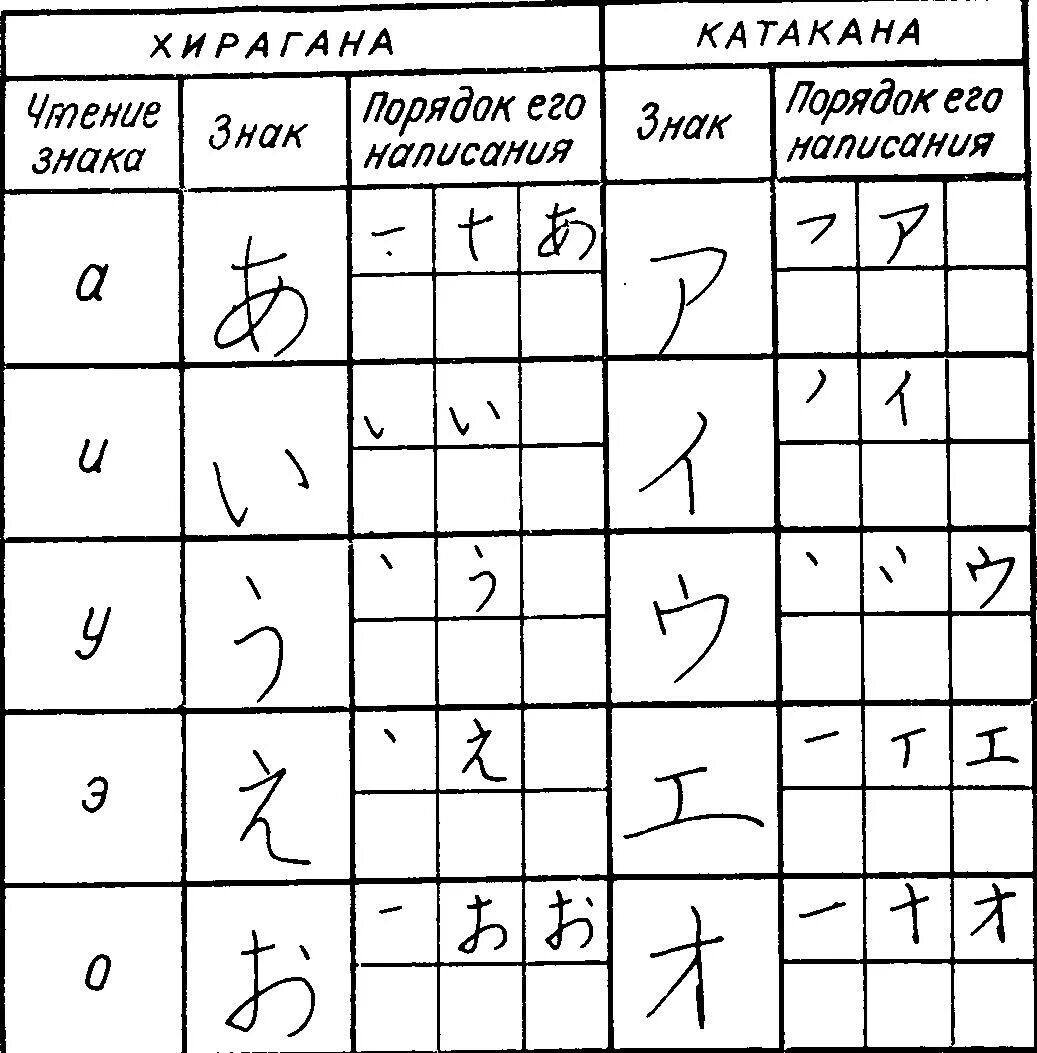 ХИРАГАНА КАТАКАНА
Чтение знака Знак Порядок его написания Знак Порядок его написания
а あ 一 十 あ ア フ ア
и い い イ ノ イ
у う 丶 う ウ 丶 ウ
э え 丶 え エ 一 丅 エ
о お 一 お お オ 一 十 オ